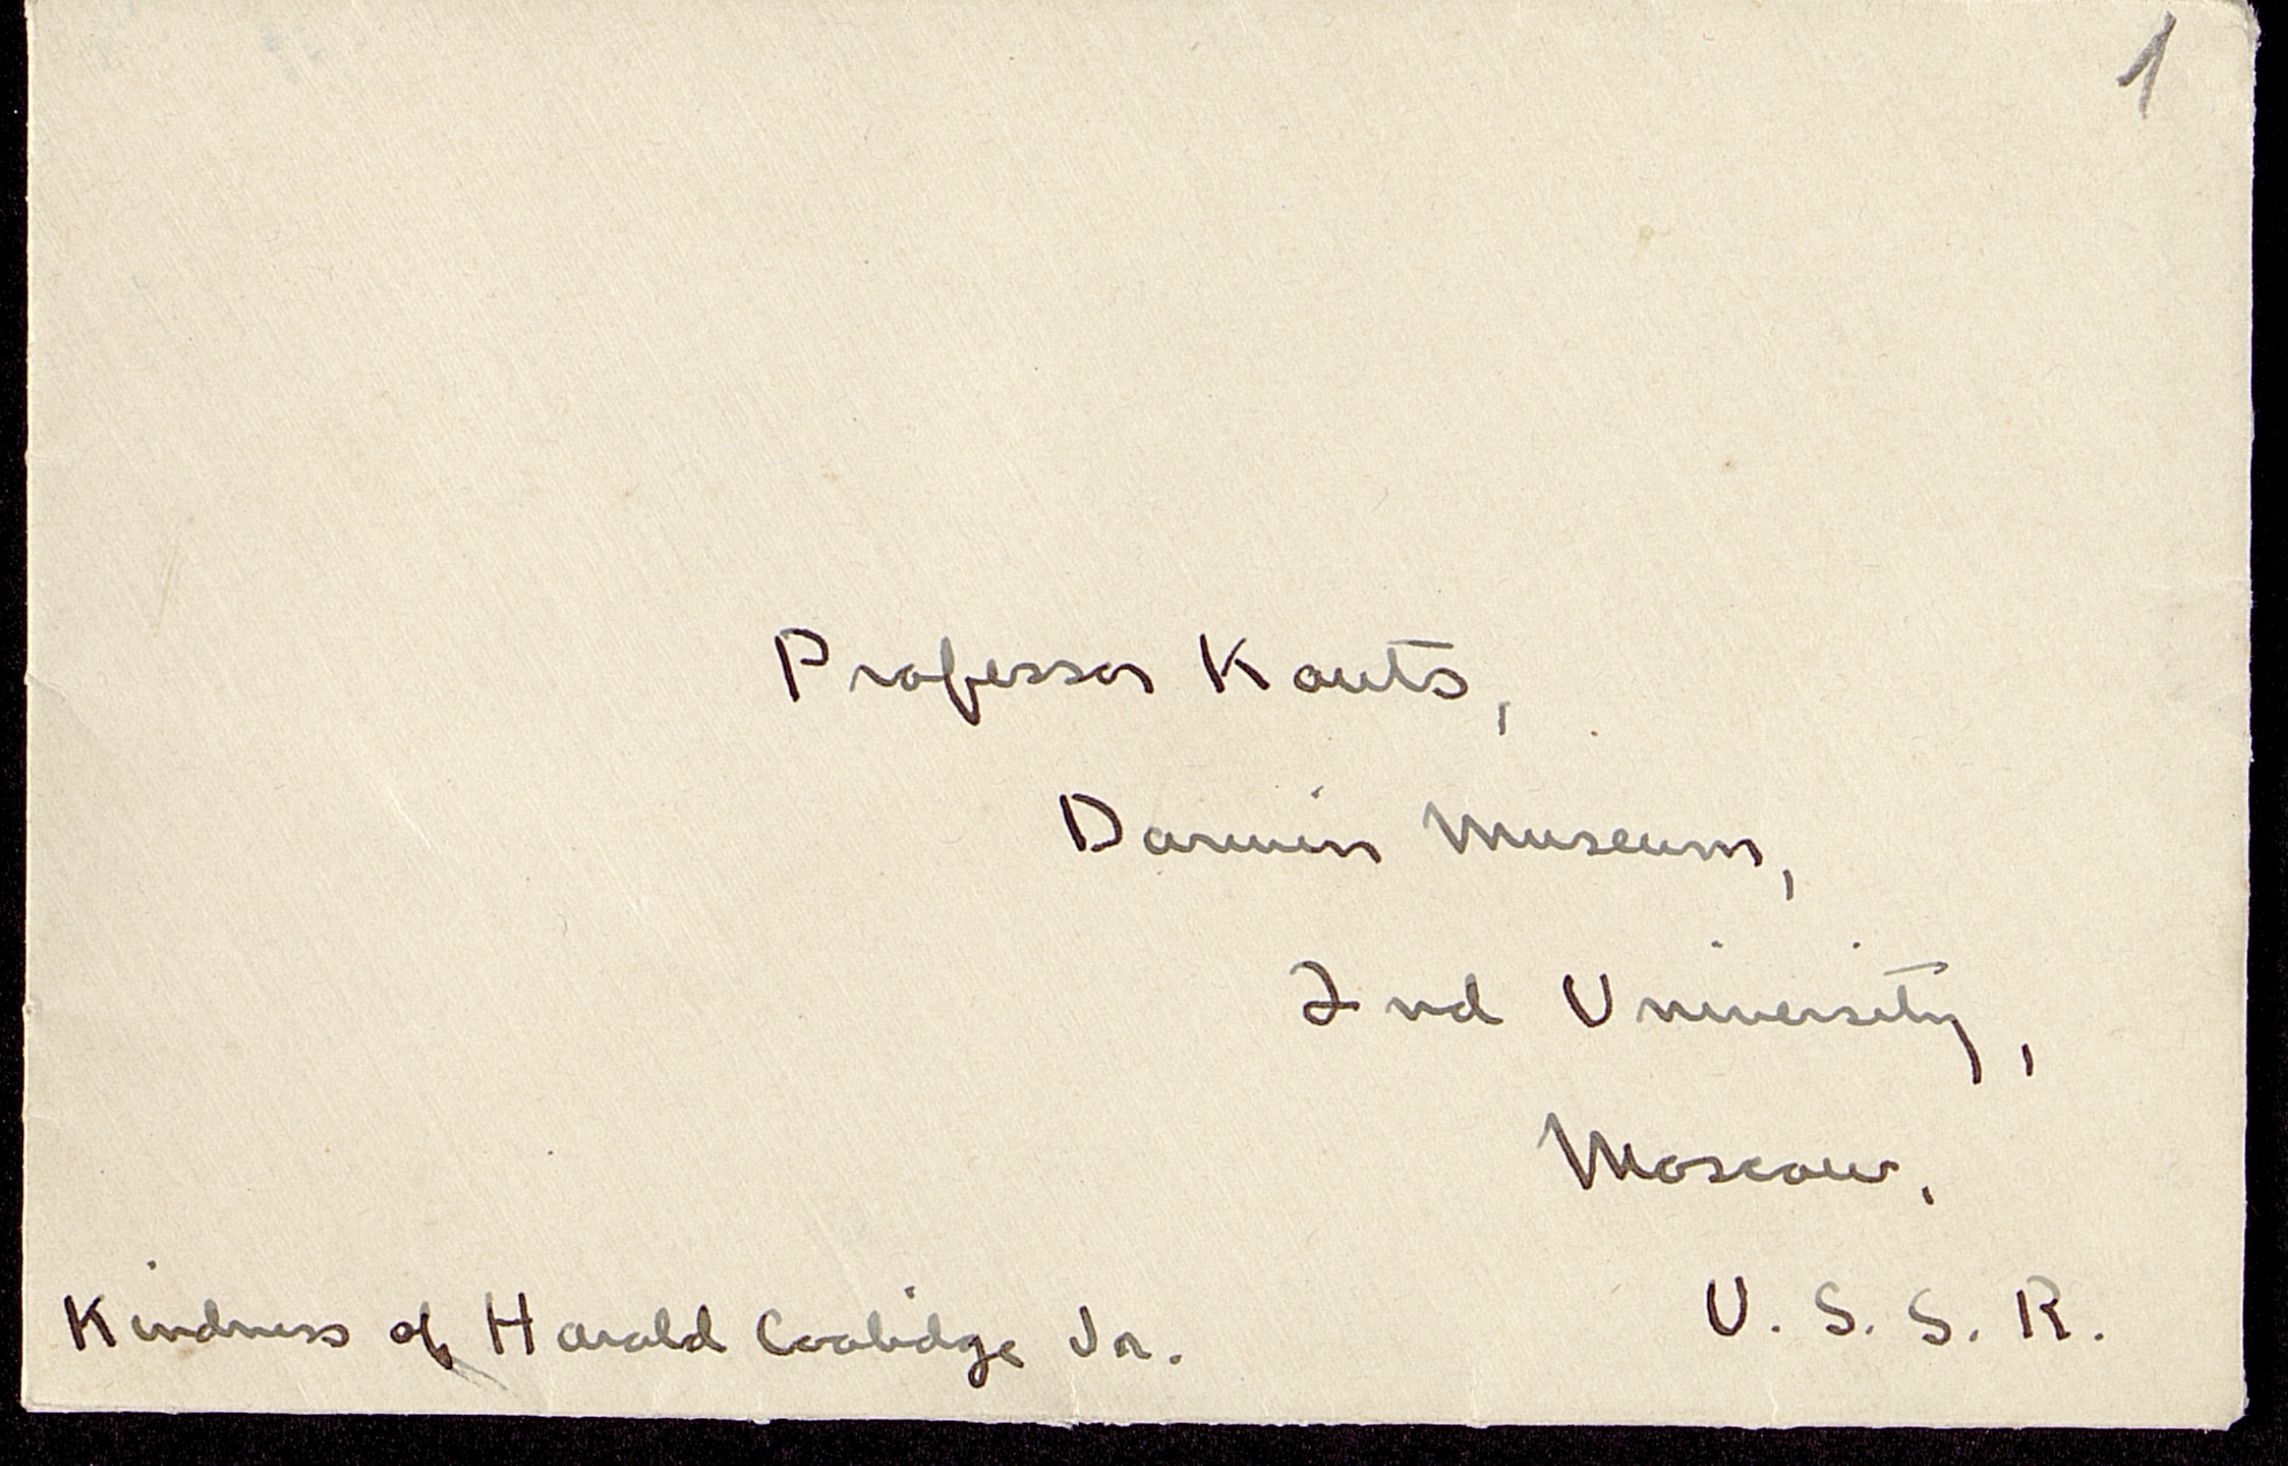 1
Professor Kouts,
Darwin Museum,
2nd University,
Moscow,
U. S. S. R.
Kindness of Harold Coolidge Jr.